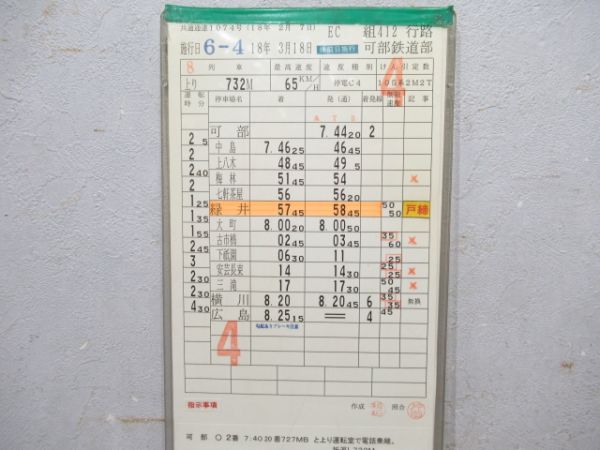 共通通達1074号(18年 2月 7日) EC 組412 行路
施行日 6-4 18年 3月18日 可部鉄道部
8 列車 最高速度 速度種別 けん引定数
上り 732M 65 KM/H 停電C4 4
運転時分 停車場名 着 発(通) 着発線 制限速度 記事
ATS
可部 7.44 20 2
2 5 中島 7.46 25 46 45
2 上八木 48 45 49 5
2 40 梅林 51 45 54 ×
2 七軒茶屋 56 56 20
1 25 緑井 57 45 58 45 50 50 戸締
1 35 大町 8.00 20 8.00 50
1 55 古市橋 02 45 03 45 35 60 ×
2 45 下祇園 06 30 11
3 安芸長束 14 14 30 25 25 ×
2 30 三滝 17 17 30 50 45 ×
2 30 横川 8.20 8.20 45 6 35 35
4 30 広島 8.25 15 = 4 45
4
指示事項 作成 照合
可部 ○2番 7:40 20着727MB とより運転室で電話乗継。